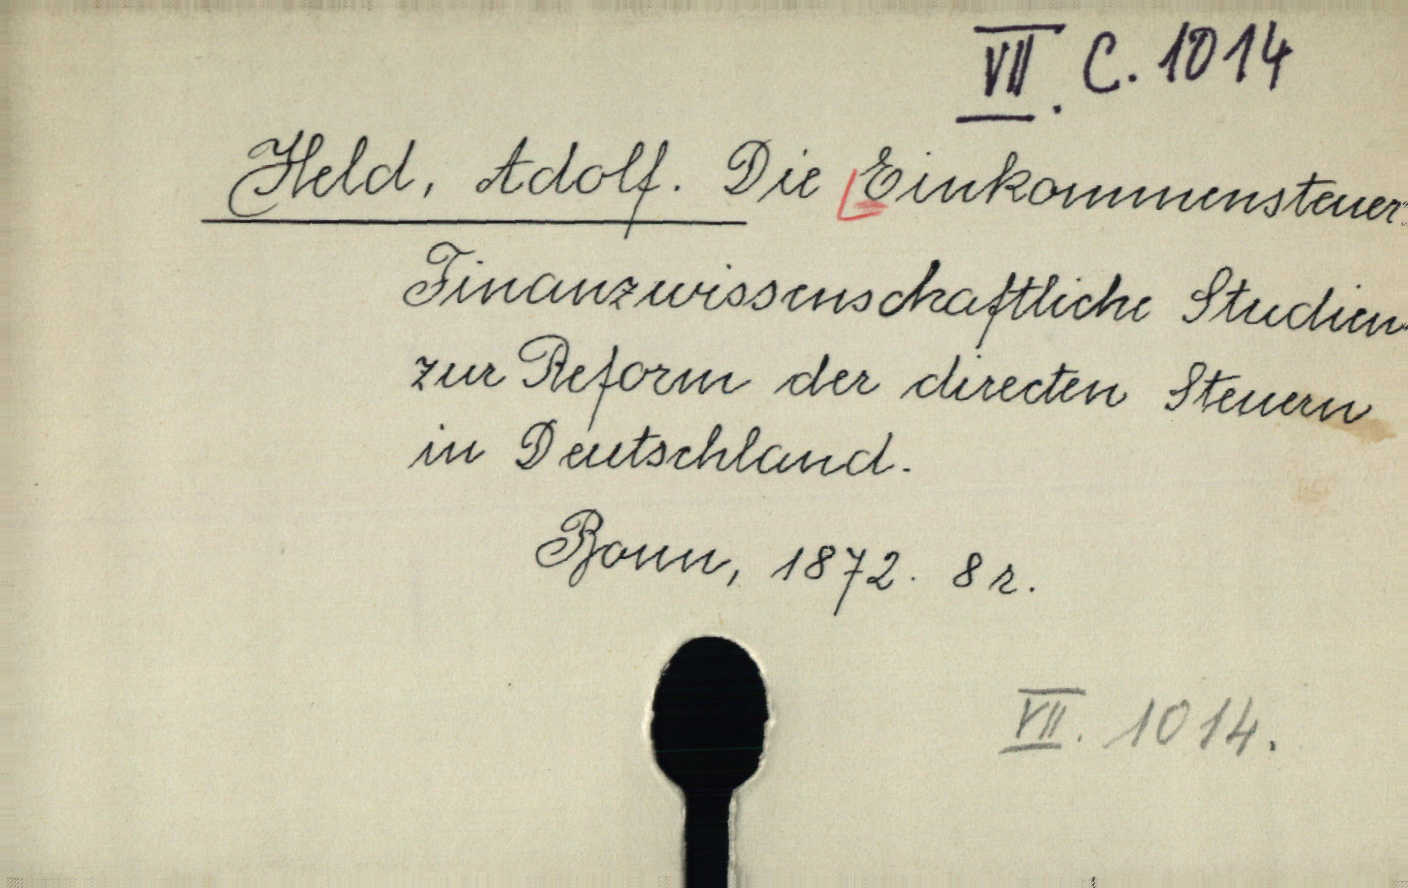 VII. C. 1014
Held, Adolf. Die Einkommensteuer.
Finanzwissenschaftliche Studien
zur Reform der directen Steuern
in Deutschland.
Bonn, 1872. 8 r.
VII. 1014.